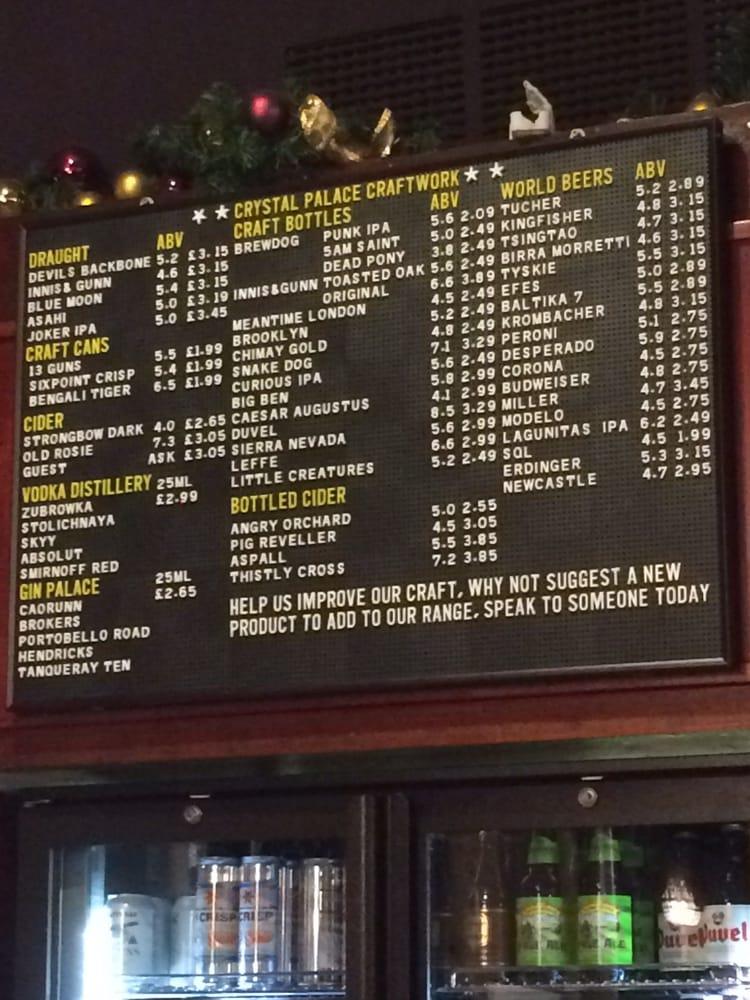 CRYSTAL PALACE CRAFTWORK
DRAUGHT ABV
DEVILS BACKBONE 5.2 £3.15
INNIS & GUNN 4.6 £3.15
BLUE MOON 5.4 £3.15
ASAHI 5.0 £3.19
JOKER IPA 5.0 £3.45
CRAFT CANS
13 GUNS 5.5 £1.99
SIXPOINT CRISP 5.4 £1.99
BENGALI TIGER 6.5 £1.99
CIDER
STRONGBOW DARK 4.0 £2.65
OLD ROSIE 7.3 £3.05
GUEST ASK £3.05
VODKA DISTILLERY 25ML
ZUBROWKA £2.99
STOLICHNAYA
SKYY
ABSOLUT
SMIRNOFF RED
GIN PALACE 25ML
CAORUNN £2.65
BROKERS
PORTOBELLO ROAD
HENDRICKS
TANQUERAY TEN
CRAFT BOTTLES ABV
BREWDOG PUNK IPA 5.6 2.09
5AM SAINT 5.0 2.49
DEAD PONY 3.8 2.49
INNIS&GUNN TOASTED OAK 5.6 2.49
ORIGINAL 6.6 3.89
MEANTIME LONDON 4.5 2.49
BROOKLYN 5.2 2.49
CHIMAY GOLD 4.8 2.49
SNAKE DOG 7.1 3.29
CURIOUS IPA 5.6 2.49
BIG BEN 5.8 2.99
CAESAR AUGUSTUS 4.1 2.99
DUVEL 8.5 3.29
SIERRA NEVADA 5.6 2.99
LEFFE 6.6 2.99
LITTLE CREATURES 5.2 2.49
BOTTLED CIDER
ANGRY ORCHARD 5.0 2.55
PIG REVELLER 4.5 3.05
ASPALL 5.5 3.85
THISTLY CROSS 7.2 3.85
WORLD BEERS ABV
TUCHER 5.2 2.89
KINGFISHER 4.8 3.15
TSINGTAO 4.7 3.15
BIRRA MORRETTI 4.6 3.15
TYSKIE 5.5 3.15
EFES 5.0 2.89
BALTIKA 7 5.5 2.89
KROMBACHER 4.8 3.15
PERONI 5.1 2.75
DESPERADO 5.9 2.75
CORONA 4.5 2.75
BUDWEISER 4.8 2.75
MILLER 4.7 3.45
MODELO 4.5 2.75
LAGUNITAS IPA 6.2 2.49
SOL 4.5 1.99
ERDINGER 5.3 3.15
NEWCASTLE 4.7 2.95
HELP US IMPROVE OUR CRAFT, WHY NOT SUGGEST A NEW
PRODUCT TO ADD TO OUR RANGE. SPEAK TO SOMEONE TODAY
CRISP CRISP
PALE ALE
Duvel Duvel